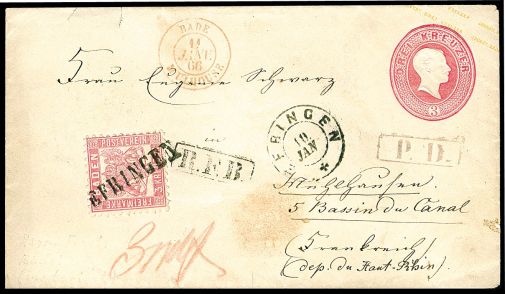 BADE
11
JANV
66
DREI KREUZER
3
Frau Eugene Schwarz
in
EFRINGEN
19
JAN
P.D.
R.F.B.
EFRINGEN
BADEN
POSTVEREIN
FREIMARKE
Mühlhausen.
5 Bassin du Canal
(Frankreich)
(dep. du Haut-Rhin).